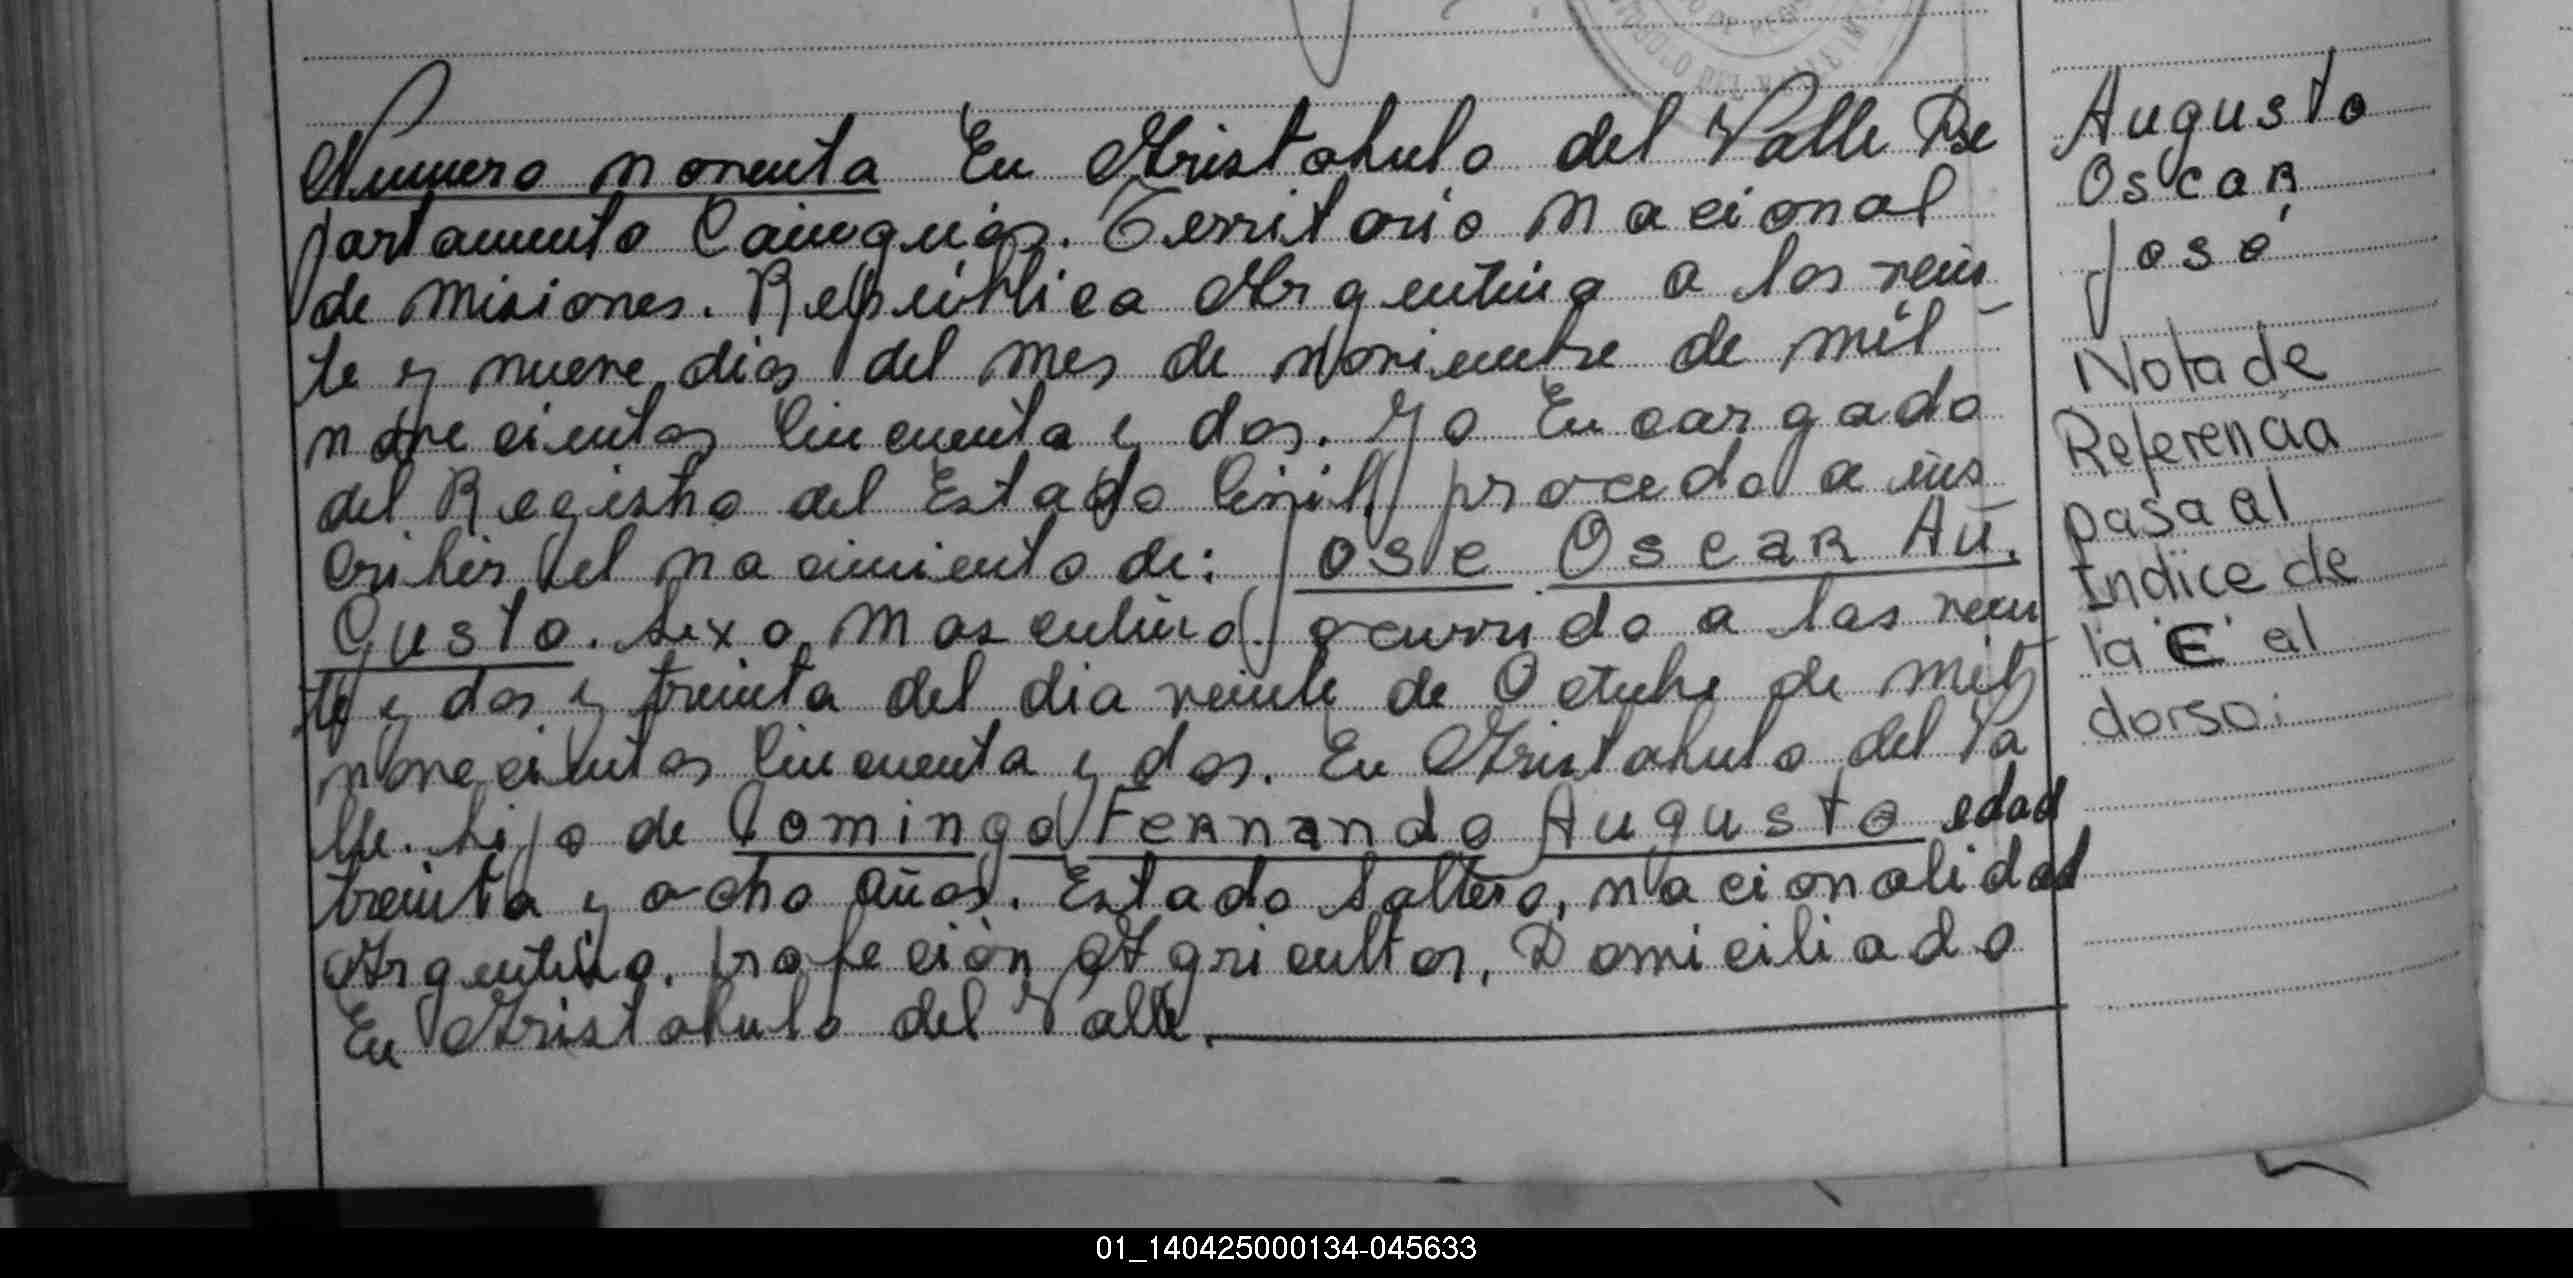 Numero nonenta En Aristobulo del Valle De
partamento Cainguás. Territorio Nacional
de Misiones. República Argentina a los vein
te y nueve dias del mes de Noviembre de mil
novecientos Cincuenta y dos. Yo Encargado
del Registro del Estado Civil, procedo a ins
cribir el nacimiento de: Jose Oscar Au.
Gusto. Sexo Masculino. ocurrido a las vein
te y dos y treinta del dia veinte de Octubre de mil
novecientos Cincuenta y dos. En Aristobulo del Va
lle. hijo de Domingo Fernando Augusto edad
treinta y ocho años. Estado Soltero, nacionalidad
Argentino. profeción Agricultor, Domiciliado
En Aristobulo del Valle.
Augusto
Oscar
José
Nota de
Referencia
pasa al
Indice de
la "E" al
dorso:
01_140425000134-045633